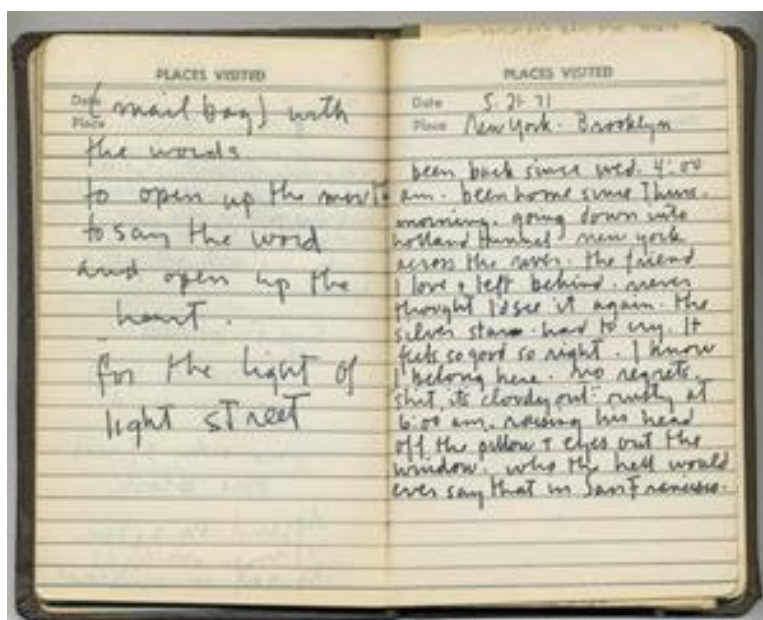 PLACES VISITED
Date
Place
(mail bag) with
the words
to open up the
to say the word
and open up the
heart.
for the light of
light street
PLACES VISITED
Date 5 21 71
Place New York - Brooklyn
been back since wed. 4:00
am. been home since Thurs.
morning. going down into
holland tunnel. new york
across the river. the friend
I love & left behind. never
thought I'd see it again. the
silver stars. had to cry. It
feels so good so right. I know
I belong here. no regrets.
shit, its cloudy out. rusty at
6:00 am. raising his head
off the pillow & eyes out the
window. who the hell would
ever say that in San Francisco.